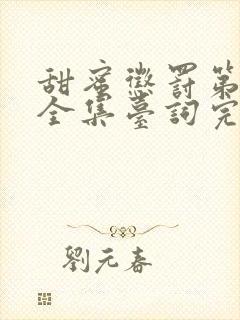 甜蜜懲罰第
全集臺詞完
劉元春